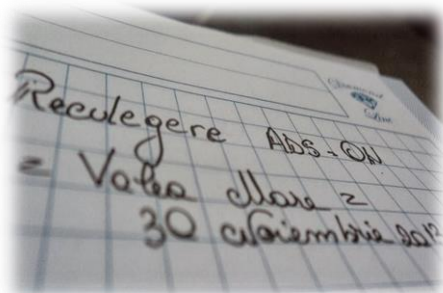 Reculegere ABS-ON
= Valea Mare =
30 Noiembrie